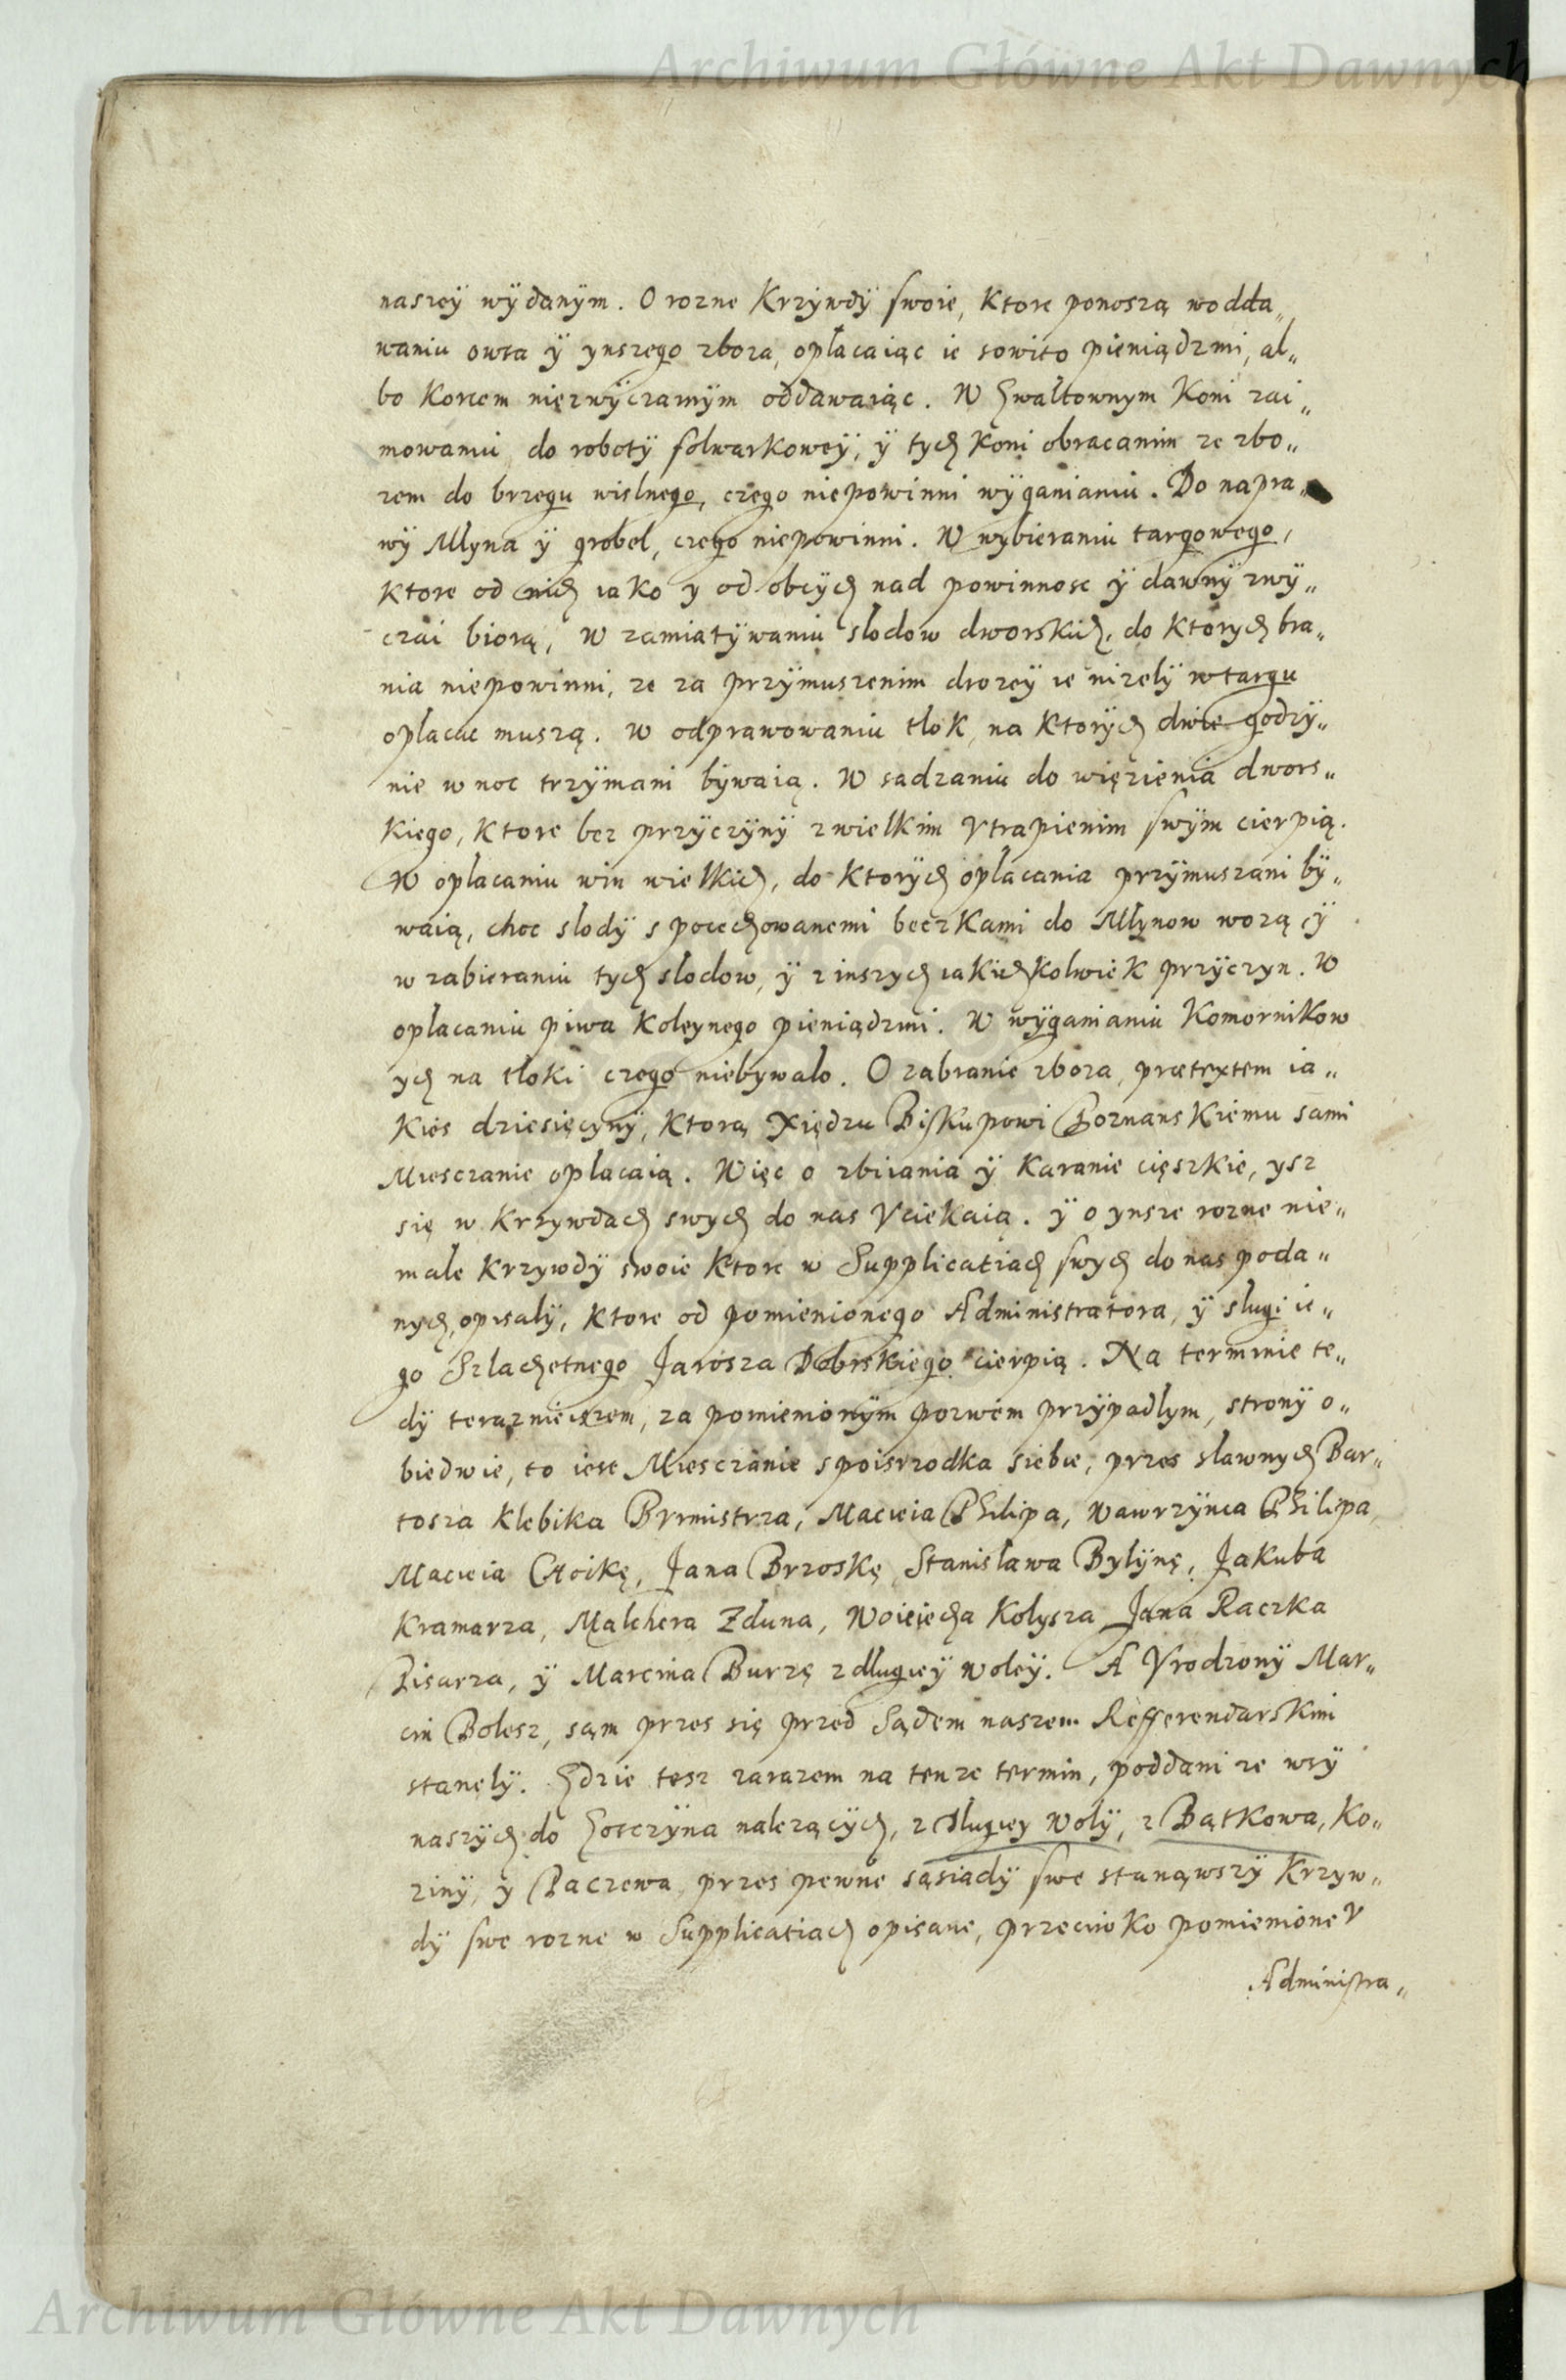 Archiwum Główne Akt Dawnych
naszeÿ wÿdanÿm. O rozne Krzÿwdÿ swoie, Ktore ponoszą w odda„
waniu owsa ÿ ynszego zboza, opłacaiąc ie sowito pieniądzmi, al„
bo Korcem niezwÿczamÿm oddawaiąc. W Gwałtownym Koni zai„
mowaniu do robotÿ folwarkoweÿ, ÿ tych Koni obracanim ze zbo„
zem do brzegu wislnego, czego niepowinni wÿganianiu. Do napra„
wÿ Młyna ÿ grobel, czego niepowinni. W wybieraniu targowego,
Ktore od nich iako y od obcych nad powinnosc ÿ dawnÿ zwÿ„
czai biorą, W zamiatÿwaniu słodow dworskich, do Ktorych bra„
nia niepowinni, ze za przÿmuszenim drozeÿ ie nizelÿ w targu
opłacac muszą. W odprawowaniu tłok, na Ktorÿch dwie godzÿ„
nie w noc trzÿmani bÿwaią. W sadzaniu do więzienia dwors„
Kiego, Ktore bez przÿczÿnÿ z wielkim Vtrapienim swÿm cierpią.
W opłacaniu win wielkich, do Ktorÿch opłacania przÿmuszani bÿ„
waią, choc słodÿ s pocechowanemi beczKami do Młynow wozą ÿ
w zabieraniu tych słodow, ÿ z inszych iakichKolwieK przÿczyn. W
opłacaniu piwa Koleynego pieniądzmi. W wÿganianiu Komornikow
ych na tłoki czego niebywało. O zabranie zboza, prætextem ia„
Kies dziesięcynÿ, Ktorą Xiędzu Biskupowi PoznansKiemu sami
Miesczanie opłacaią. Więc o zbiiania ÿ Karanie cięszkie, ysz
się w Krzywdach swych do nas VcieKaią. ÿ o ynsze rozne nie„
małe Krzywdÿ swoie Ktore w Supplicatiach swych do nas poda„
nych, opisalÿ, Ktore od pomienionego Administratora, ÿ sługi ie„
go Szlachetnego Jarosza Dobrskiego cierpią. Na terminie te„
dÿ teraznieiszem, za pomienionÿm pozwem przÿpadłym, strony o„
biedwie, to iest Miesczanie s poisrzodka siebie, przes sławnych Bar„
tosza Klebika Brmistrza, Macieia Philipa, Wawrzÿnca Philipa,
Macieia Choikę, Jana Brzoskę, Stanisława Bylÿnę, Jakuba
Kramarza, Malchera Zduna, Woiciecha Kolysza Jana Raczka
Pisarza, ÿ Marcina Burzę z długieÿ Woleÿ. A Vrodzonÿ Mar„
cin Bolesz, sąm przes się przed Sądem naszem Refferendarskim
stanęlÿ. Gdzie tesz zarazem na tenze termin, poddani ze wsÿ
naszÿch do Gosczÿna nalezącÿch, z Długiey Wolÿ, z BątKowa, Ko„
zinÿ, y Baczewa, przes pewne sąsiadÿ swe stanąwszÿ Krzÿw„
dÿ swe rozne w Supplicatiach opisane, przeciwKo pomienione V
Administra„
Archiwum Główne Akt Dawnych